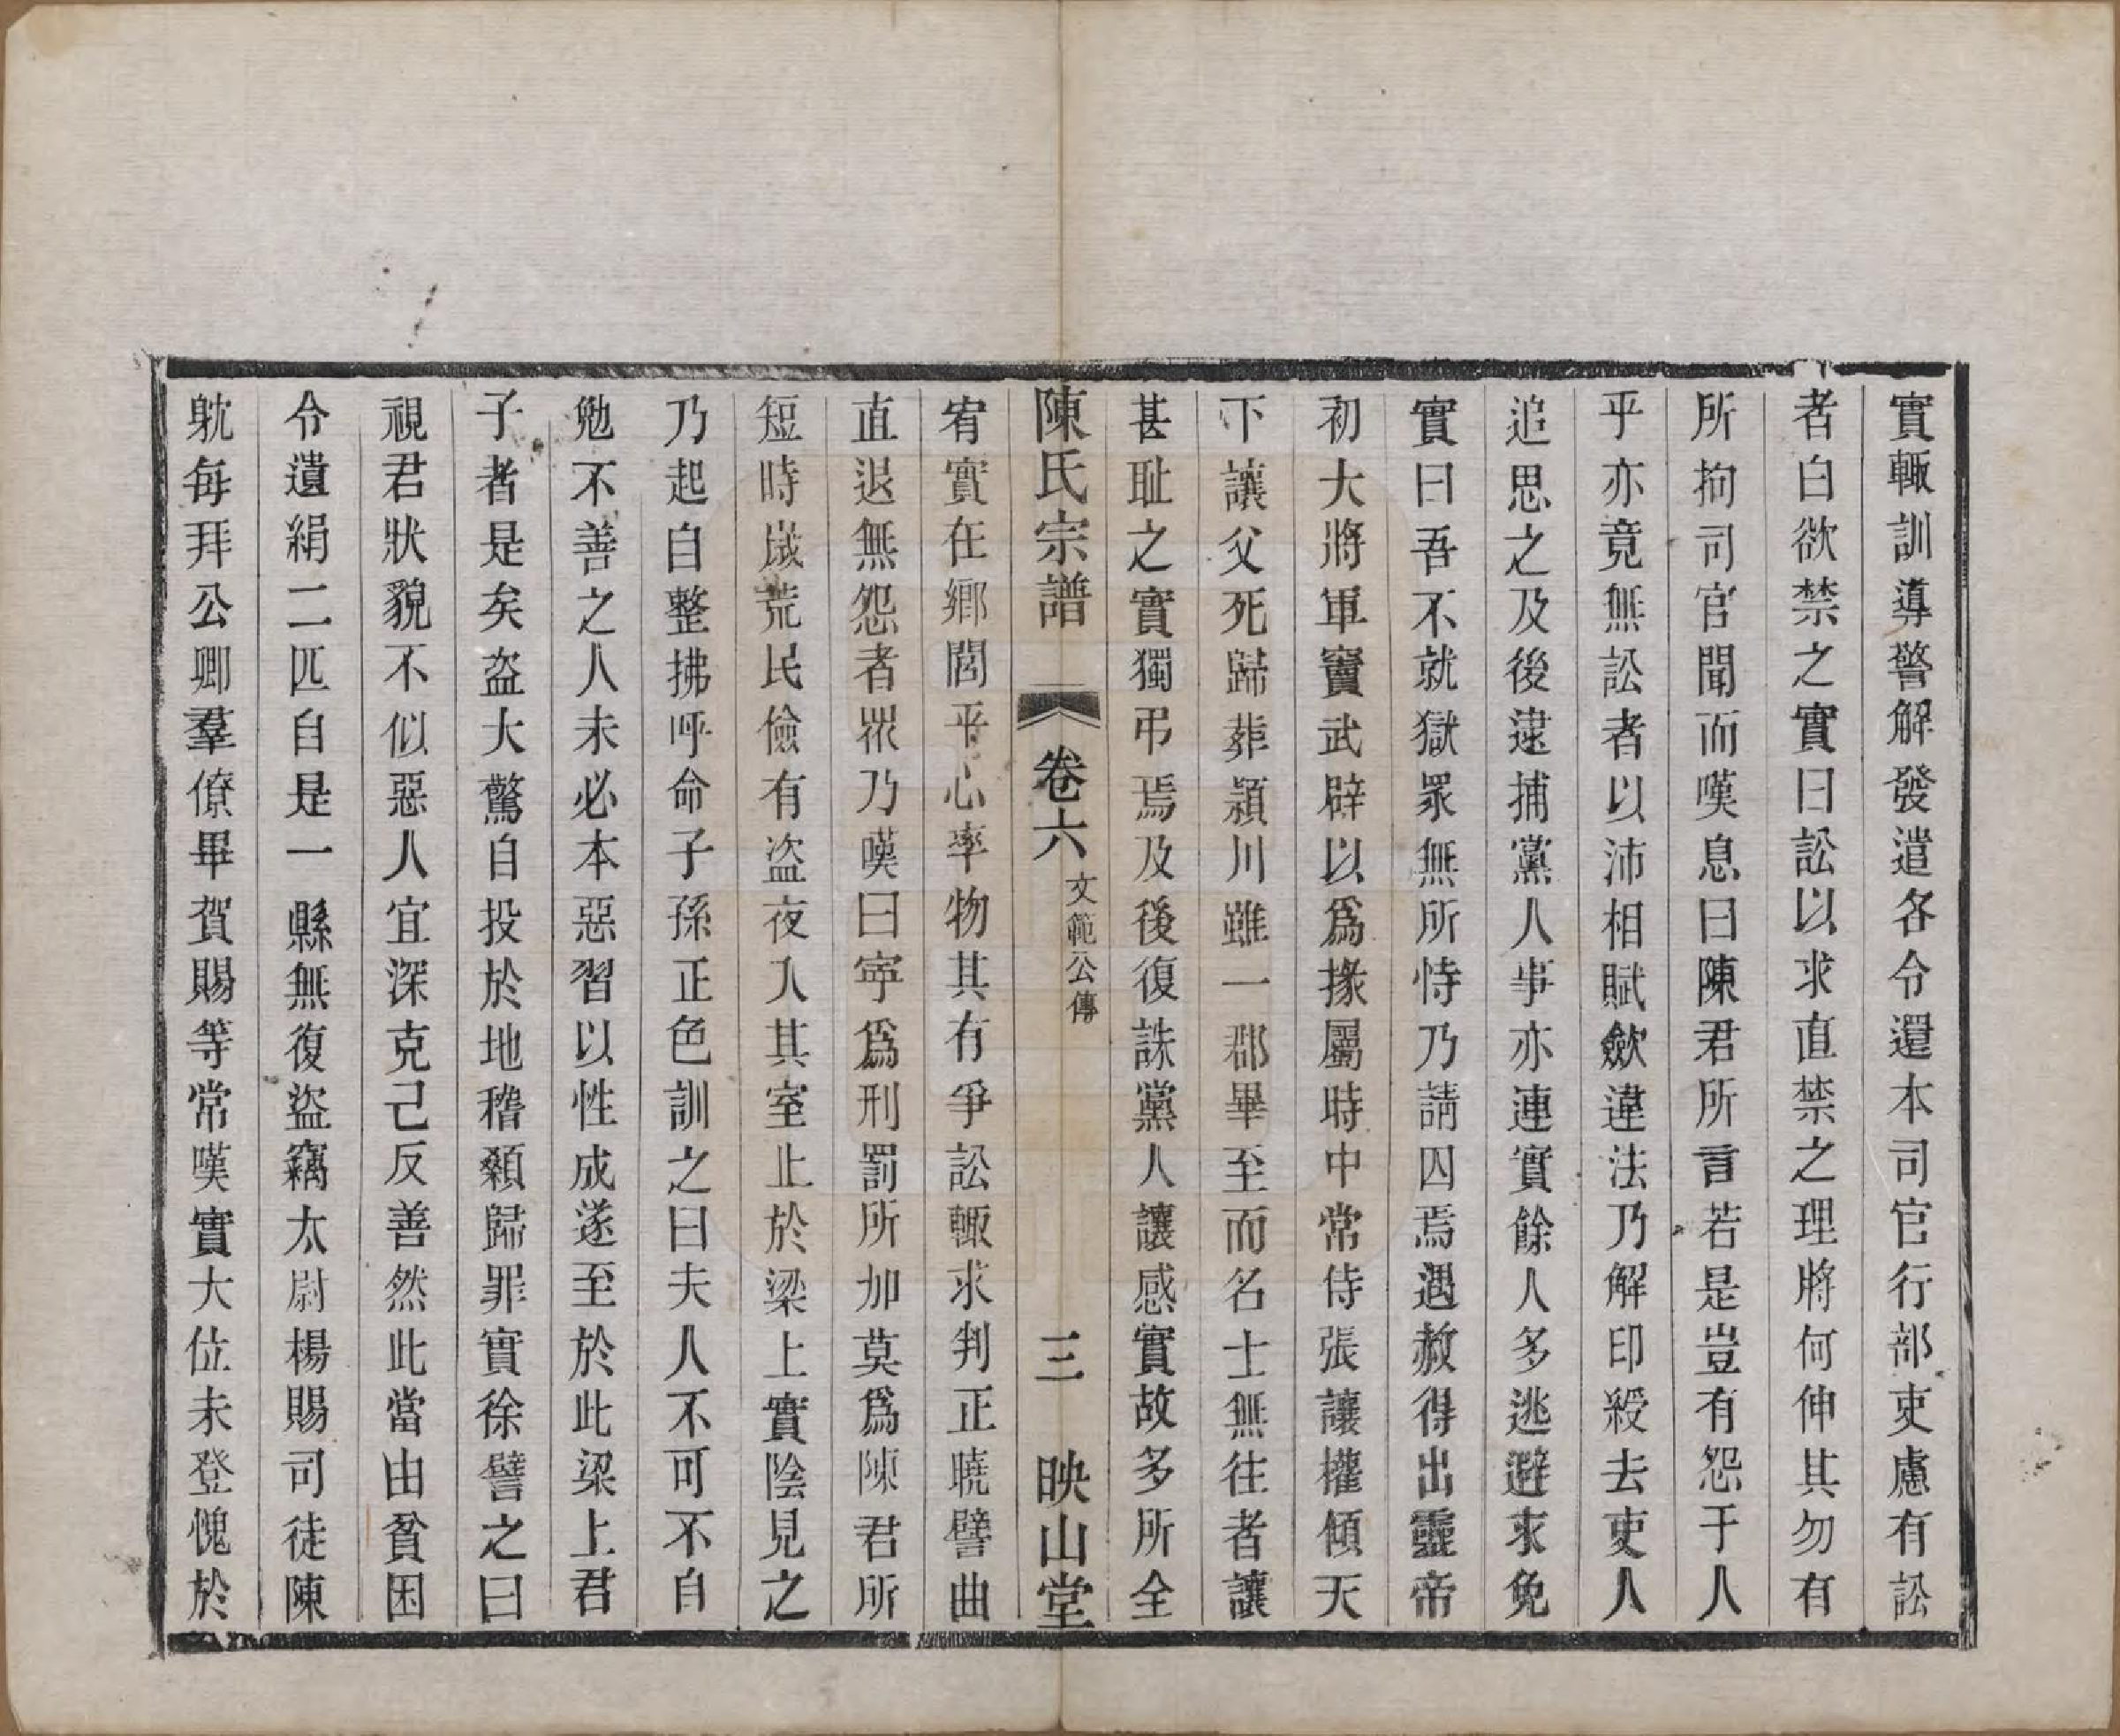 實輒訓導警解發遣各令還本司官行部吏慮有訟
者白欲禁之實曰訟以求直禁之理將何伸其勿有
所拘司官聞而嘆息曰陳君所言若是豈有怨于人
乎亦竟無訟者以沛相賦斂違法乃解印綬去吏人
追思之及後逮捕黨人事亦連實餘人多逃避求免
實曰吾不就獄眾無所恃乃請囚焉遇赦得出靈帝
初大將軍竇武辟以爲掾屬時中常侍張讓權傾天
下讓父死歸葬潁川雖一郡畢至而名士無往者讓
甚耻之實獨弔焉及後復誅黨人讓感實故多所全
陳氏宗譜 卷六 文範公傳 三 映山堂
宥實在鄉閭平心率物其有爭訟輒求判正曉譬曲
直退無怨者眾乃嘆曰寧爲刑罰所加莫爲陳君所
短時歲荒民儉有盜夜入其室止於梁上實陰見之
乃起自整拂呼命子孫正色訓之曰夫人不可不自
勉不善之人未必本惡習以性成遂至於此梁上君
子者是矣盜大驚自投於地稽顙歸罪實徐譬之曰
視君狀貌不似惡人宜深克己反善然此當由貧困
令遺絹二匹自是一縣無復盜竊太尉楊賜司徒陳
躭每拜公卿羣僚畢賀賜等常嘆實大位未登愧於